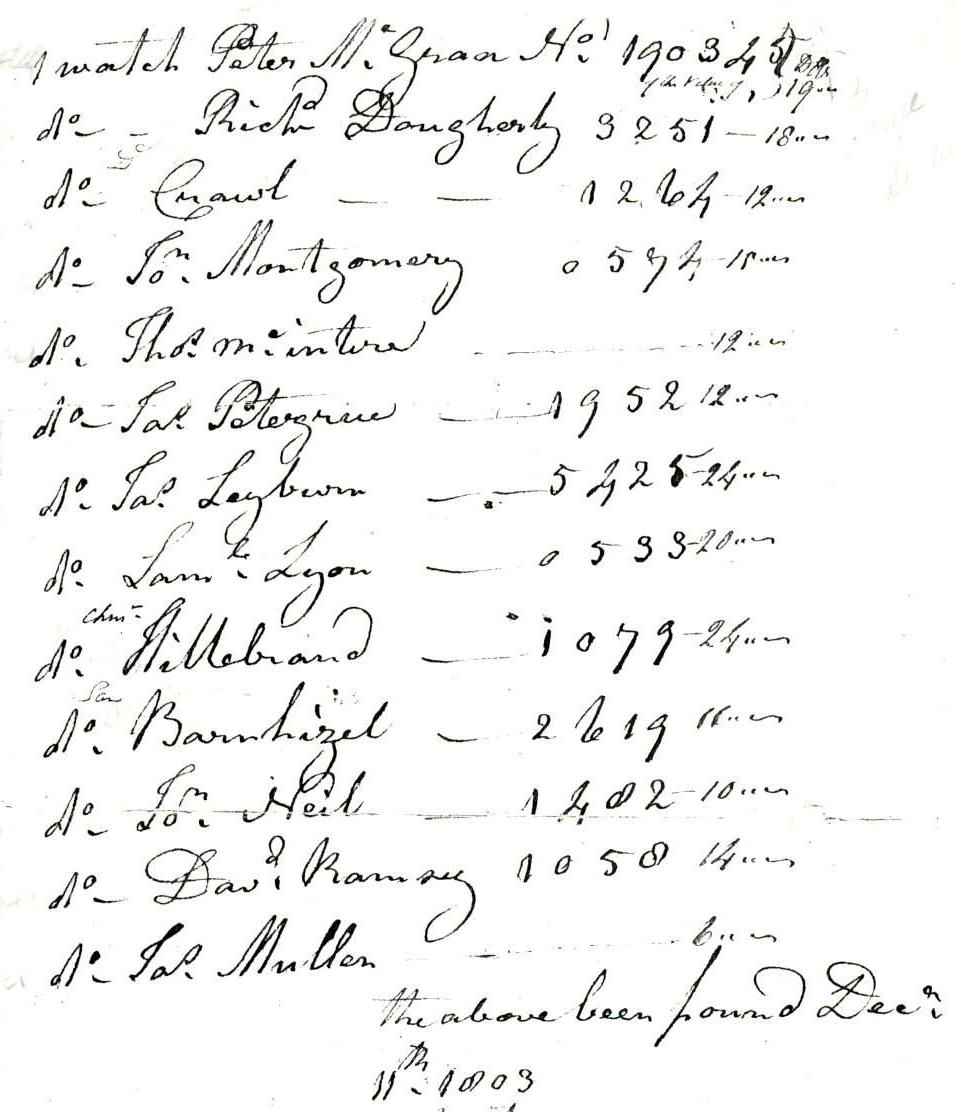 1 watch Peter Mc. Graa No. 190345 Dolrs
of the Value of 19"..
do - Richd Dougherty 3251 - 18"..
do - Crawl — — 1264 - 12"..
do - Jon. Montgomery 0574 - 15"..
do. Thos. mcintire 12"..
do - Jas. Petegrue — 1952 12"..
do. Jas. Leyburn — 5425 - 24"..
do. Saml. Lyon — 0533 - 20"..
do. Chrisr Hillebrand — 1079 - 24"..
do. Barnhizel — 2619 11"..
do - Jon. Neil — 1482 - 10"..
do - Davd. Ramsey 1058 14"..
do - Jas. Mullen 6"..
the above been found Decr.
11th. 1803